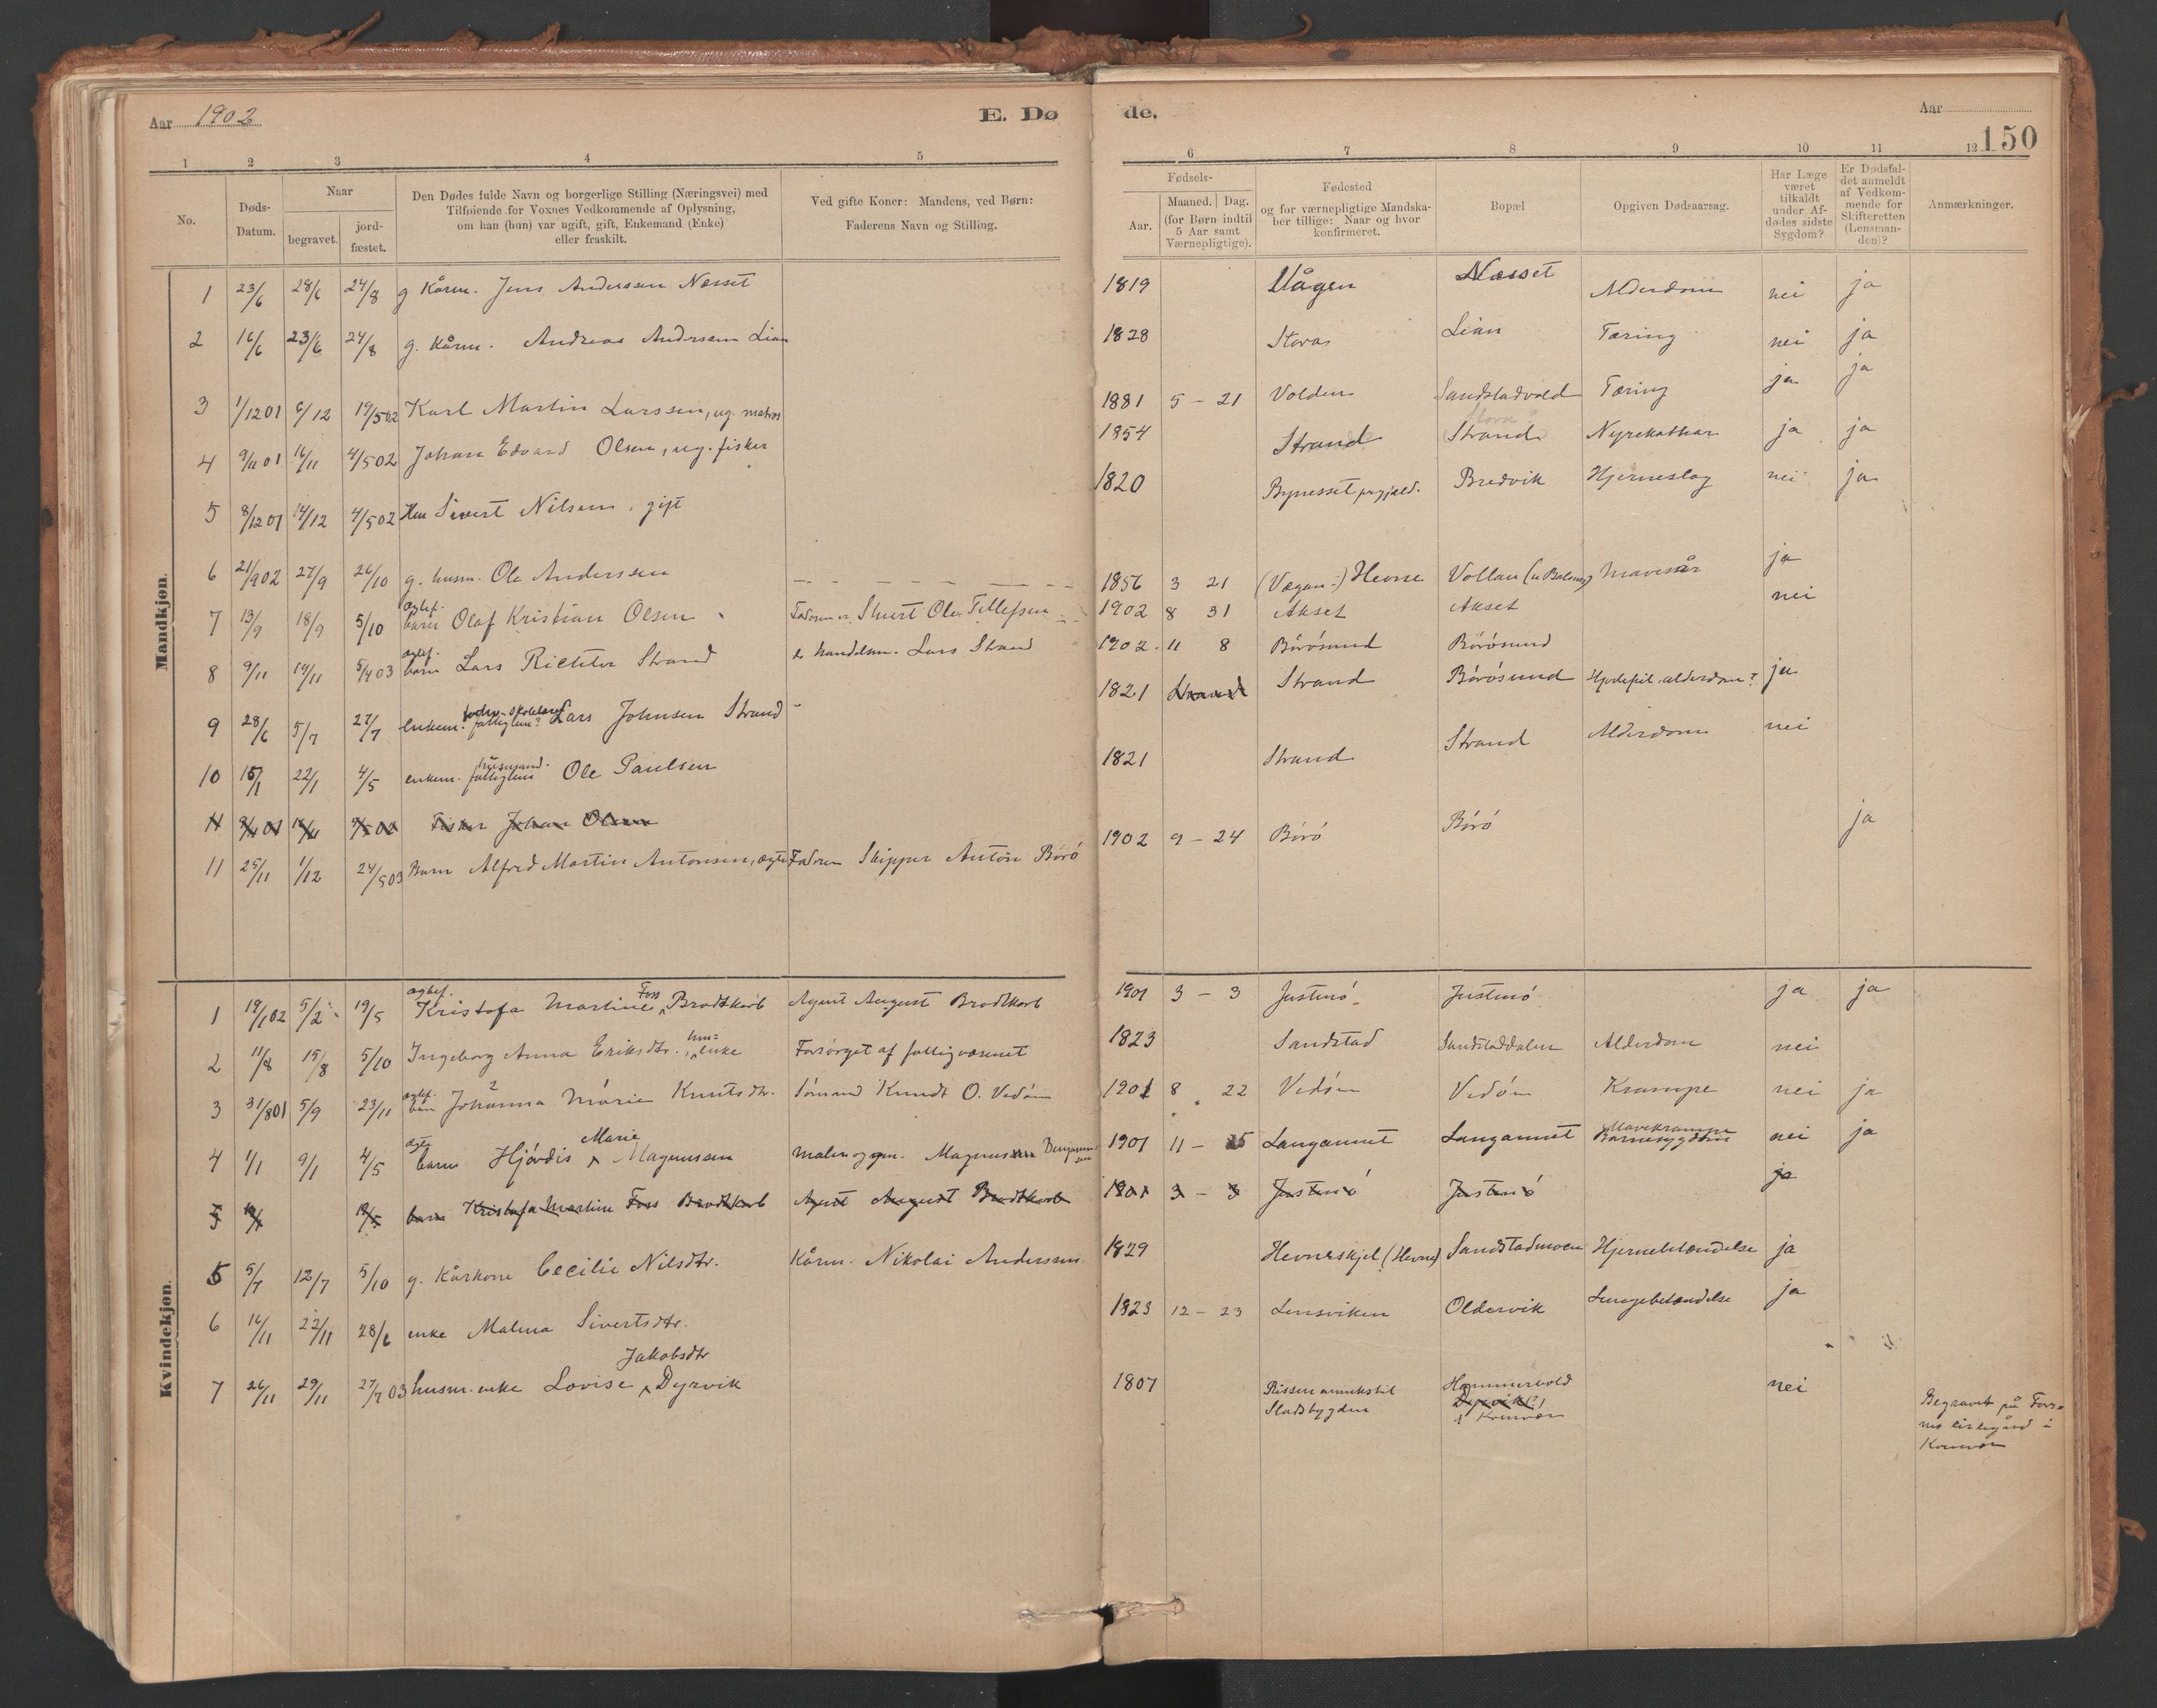 Aar 1902
E. Dø
de.
Aar
150
1 2 3 4 5 6 7 8 9 10 11 12
No.
Døds-
Datum.
Naar
begravet.
jord-
fæstet.
Den Dødes fulde Navn og borgerlige Stilling (Næringsvei) med
Tilføiende for Voxnes Vedkommende af Oplysning,
om han (hun) var ugift, gift, Enkemand (Enke)
eller fraskilt.
Ved gifte Koner: Mandens, ved Børn:
Faderens Navn og Stilling.
Fødsels-
Aar.
Maaned. Dag.
(for Børn indtil
5 Aar samt
Værnepligtige).
Fødested
og for værnepligtige Mandska-
ber tillige: Naar og hvor
konfirmeret.
Bopæl
Opgiven Dødsaarsag.
Har Læge
været
tilkaldt
under Af-
dødes sidste
Sygdom?
Er Dødsfal-
det anmeldt
af Vedkom-
mende for
Skifteretten
(Lensman-
den)?
Anmærkninger.
Mandkjøn.
1 23/6 28/6 24/8 g Kårm. Jens Anderssen Næsset 1819 Vågen Næsset Alderdom nei ja
2 16/6 23/6 24/8 g. Kårm. Andreas Anderssen Lian 1828 Storås Lian Tæring nei ja
3 1/12 01 6/12 19/5 02 Karl Martin Larssen, ug. matros 1881 5 - 21 Volden Sandstadvold Tæring ja ja
4 9/11 01 16/11 4/5 02 Johan Edvard Olsen, ug. fisker 1854 Strand Strand Nyrekathar ja ja
5 8/12 01 14/12 4/5 02 Sivert Nilsen, gift 1820 Bynesset prgjæld. Bredvik Hjerneslag nei ja
6 21/9 02 27/9 26/10 g. husm. Ole Anderssen 1856 3 21 Hevne Vollan Mavesår ja
7 13/9 18/9 5/10 ægtef. barn Olaf Kristian Olsen Ole Tellefsen 1902 8 31 Akset Akset nei
8 9/11 14/11 5/4 03 ægtef. barn Lars Richter Strand handelsm. Lars Strand 1902 11 8 Börösund Börösund
9 28/6 5/7 27/7 enkem. Lars Johnsen Strand 1821 Strand Strand Börösund alderdom? ja
10 15/1 22/1 4/5 enkem. husmand. fattiglem Ole Paulsen 1821 Strand Strand Alderdom nei
11 9/11 01 16/11 4/5 02 Fisker Johan Olsen
11 25/11 1/12 24/5 03 Barn Alfred Martin Antonsen, ægte Faderen Skipper Anton Börö 1902 9 - 24 Börö Börö ja
Kvindekjøn.
1 19/1 02 5/2 19/5 ægtef. Kristofa Martine Foss Brodtkorb Agent August Brodtkorb 1901 3 - 3 Justnö Justnö ja ja
2 11/8 15/8 5/10 Ingeborg Anna Eriksdtr. enke Forsörget af fattigvæsenet 1823 Sandstad Sandstaddalen Alderdom nei
3 31/8 01 5/9 23/11 ægtef. barn Johanna Marie Knutsdtr. Sömand Knudt O. Vedöin 1901 8 22 Vedöin Vedöin Krampe nei ja
4 1/1 9/1 4/5 ægte barn Hjördis Marie Magnussen Magnus Benjaminsen 1901 11 - 25 Langannet Langannet Mavekrampe Barnesygdom nei ja
5 19/1 19/5 barn Kristofa Martine Foss Brodtkorb Agent August Brodtkorb 1901 3 - 3 Justnö Justnö ja
5 5/7 12/7 5/10 g. Kårkone Cecilie Nilsdtr. Kårm. Nikolai Anderssen 1829 Hevneskjel (Hevne) Sandstadmoen Hjernebetændelse ja
6 16/11 22/11 28/6 enke Malena Sivertsdtr. 1823 12 - 23 Lensviken Oldervik Lungebetændelse ja
7 26/11 29/11 27/7 03 husm. enke Lovise Jakobsdtr Dyrvik 1807 Rissen annekstil Stadsbygden Hammervold Dyrvik(?) i Kvenvær nei Begravet på Forsnes kirkegård i Kvenvær